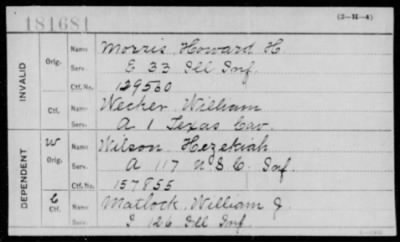 181681
(3-H-4)
INVALID
Orig.
Name Morris Howard H
Serv. E 33 Ill Inf.
Ctf. No. 129530
Ctf.
Name Wecher William
Serv. A 1 Texas Cav.
DEPENDENT
W
Orig.
Name Wilson Hezekiah
Serv. A 117 U.S.C. Inf.
Ctf. No. 157855
C
Ctf.
Name Matlock, William J.
Serv. I 126 Ill Inf